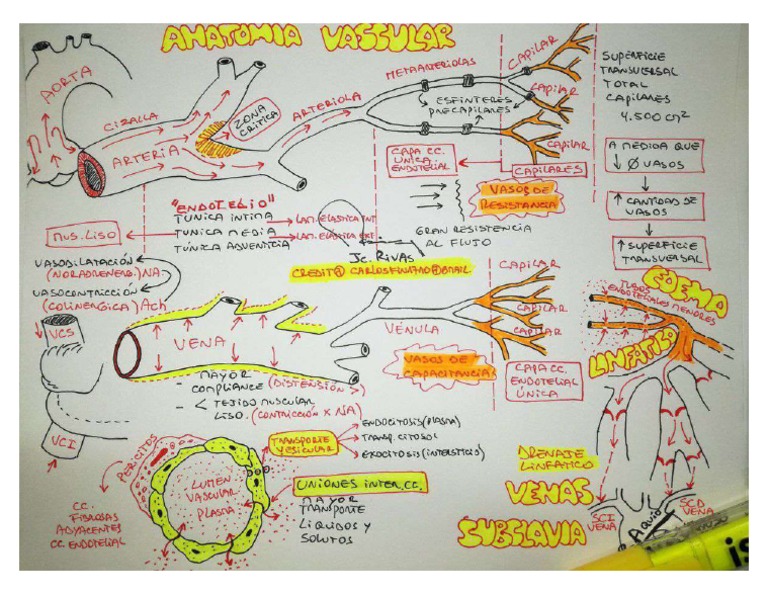 ANATOMIA VASCULAR
AORTA
CIZALLA
ARTERIA
ZONA
CRITICA
ARTERIOLA
METAARTERIOLAS
ESFINTERES
PRECAPILARES
CAPILAR
CAPILAR
CAPILAR
CAPILARES
CAPA CC.
UNICA
ENDOTELIAL
VASOS DE
RESISTANCIA
GRAN RESISTENCIA
AL FLUJO
SUPERFICIE
TRANSVERSAL
TOTAL
CAPILARES
4.500 cm²
A MEDIDA QUE
↓ Ø VASOS
↑ CANTIDAD DE
VASOS
↑ SUPERFICIE
TRANSVERSAL
"ENDOTELIO"
TUNICA INTIMA → LAM. ELASTICA INT
MUS. LISO ← TUNICA MEDIA → LAM. ELASTICA EXT
TÚNICA ADVENTICIA
Jc. RIVAS
VASODILATACIÓN
(NORADRENERG.) NA
VASOCONTRICCIÓN
(COLINERGICA) ACh
↓ VCS
VCI
VENA
MAYOR
COMPLIANCE (DISTENSIÓN >)
- < TEJIDO MUSCULAR
LISO. (CONTRICCIÓN X NA)
VÉNULA
VASOS DE
CAPACITANCIA
CAPILAR
CAPILAR
CAPILAR
CAPA CC.
ENDOTELIAL
ÚNICA
EDEMA
TUBOS
ENDOTELIALES MENORES
LINFATICO
PERICITOS
CC.
FIBROSAS
ADYACENTES
CC. ENDOTELIAL
LUMEN
VASCULAR
PLASMA
TRANSPORTE
VESICULAR
ENDOCITOSIS (PLASMA)
TRANSP. CITOSOL
EXOCITOSIS (INTERSTICIO)
UNIONES INTER CC.
MAYOR
TRANSPORTE
LIQUIDOS Y
SOLUTOS
DRENAJE
LINFATICO
VENAS
SUBCLAVIA
SCI
VENA
SCD
VENA